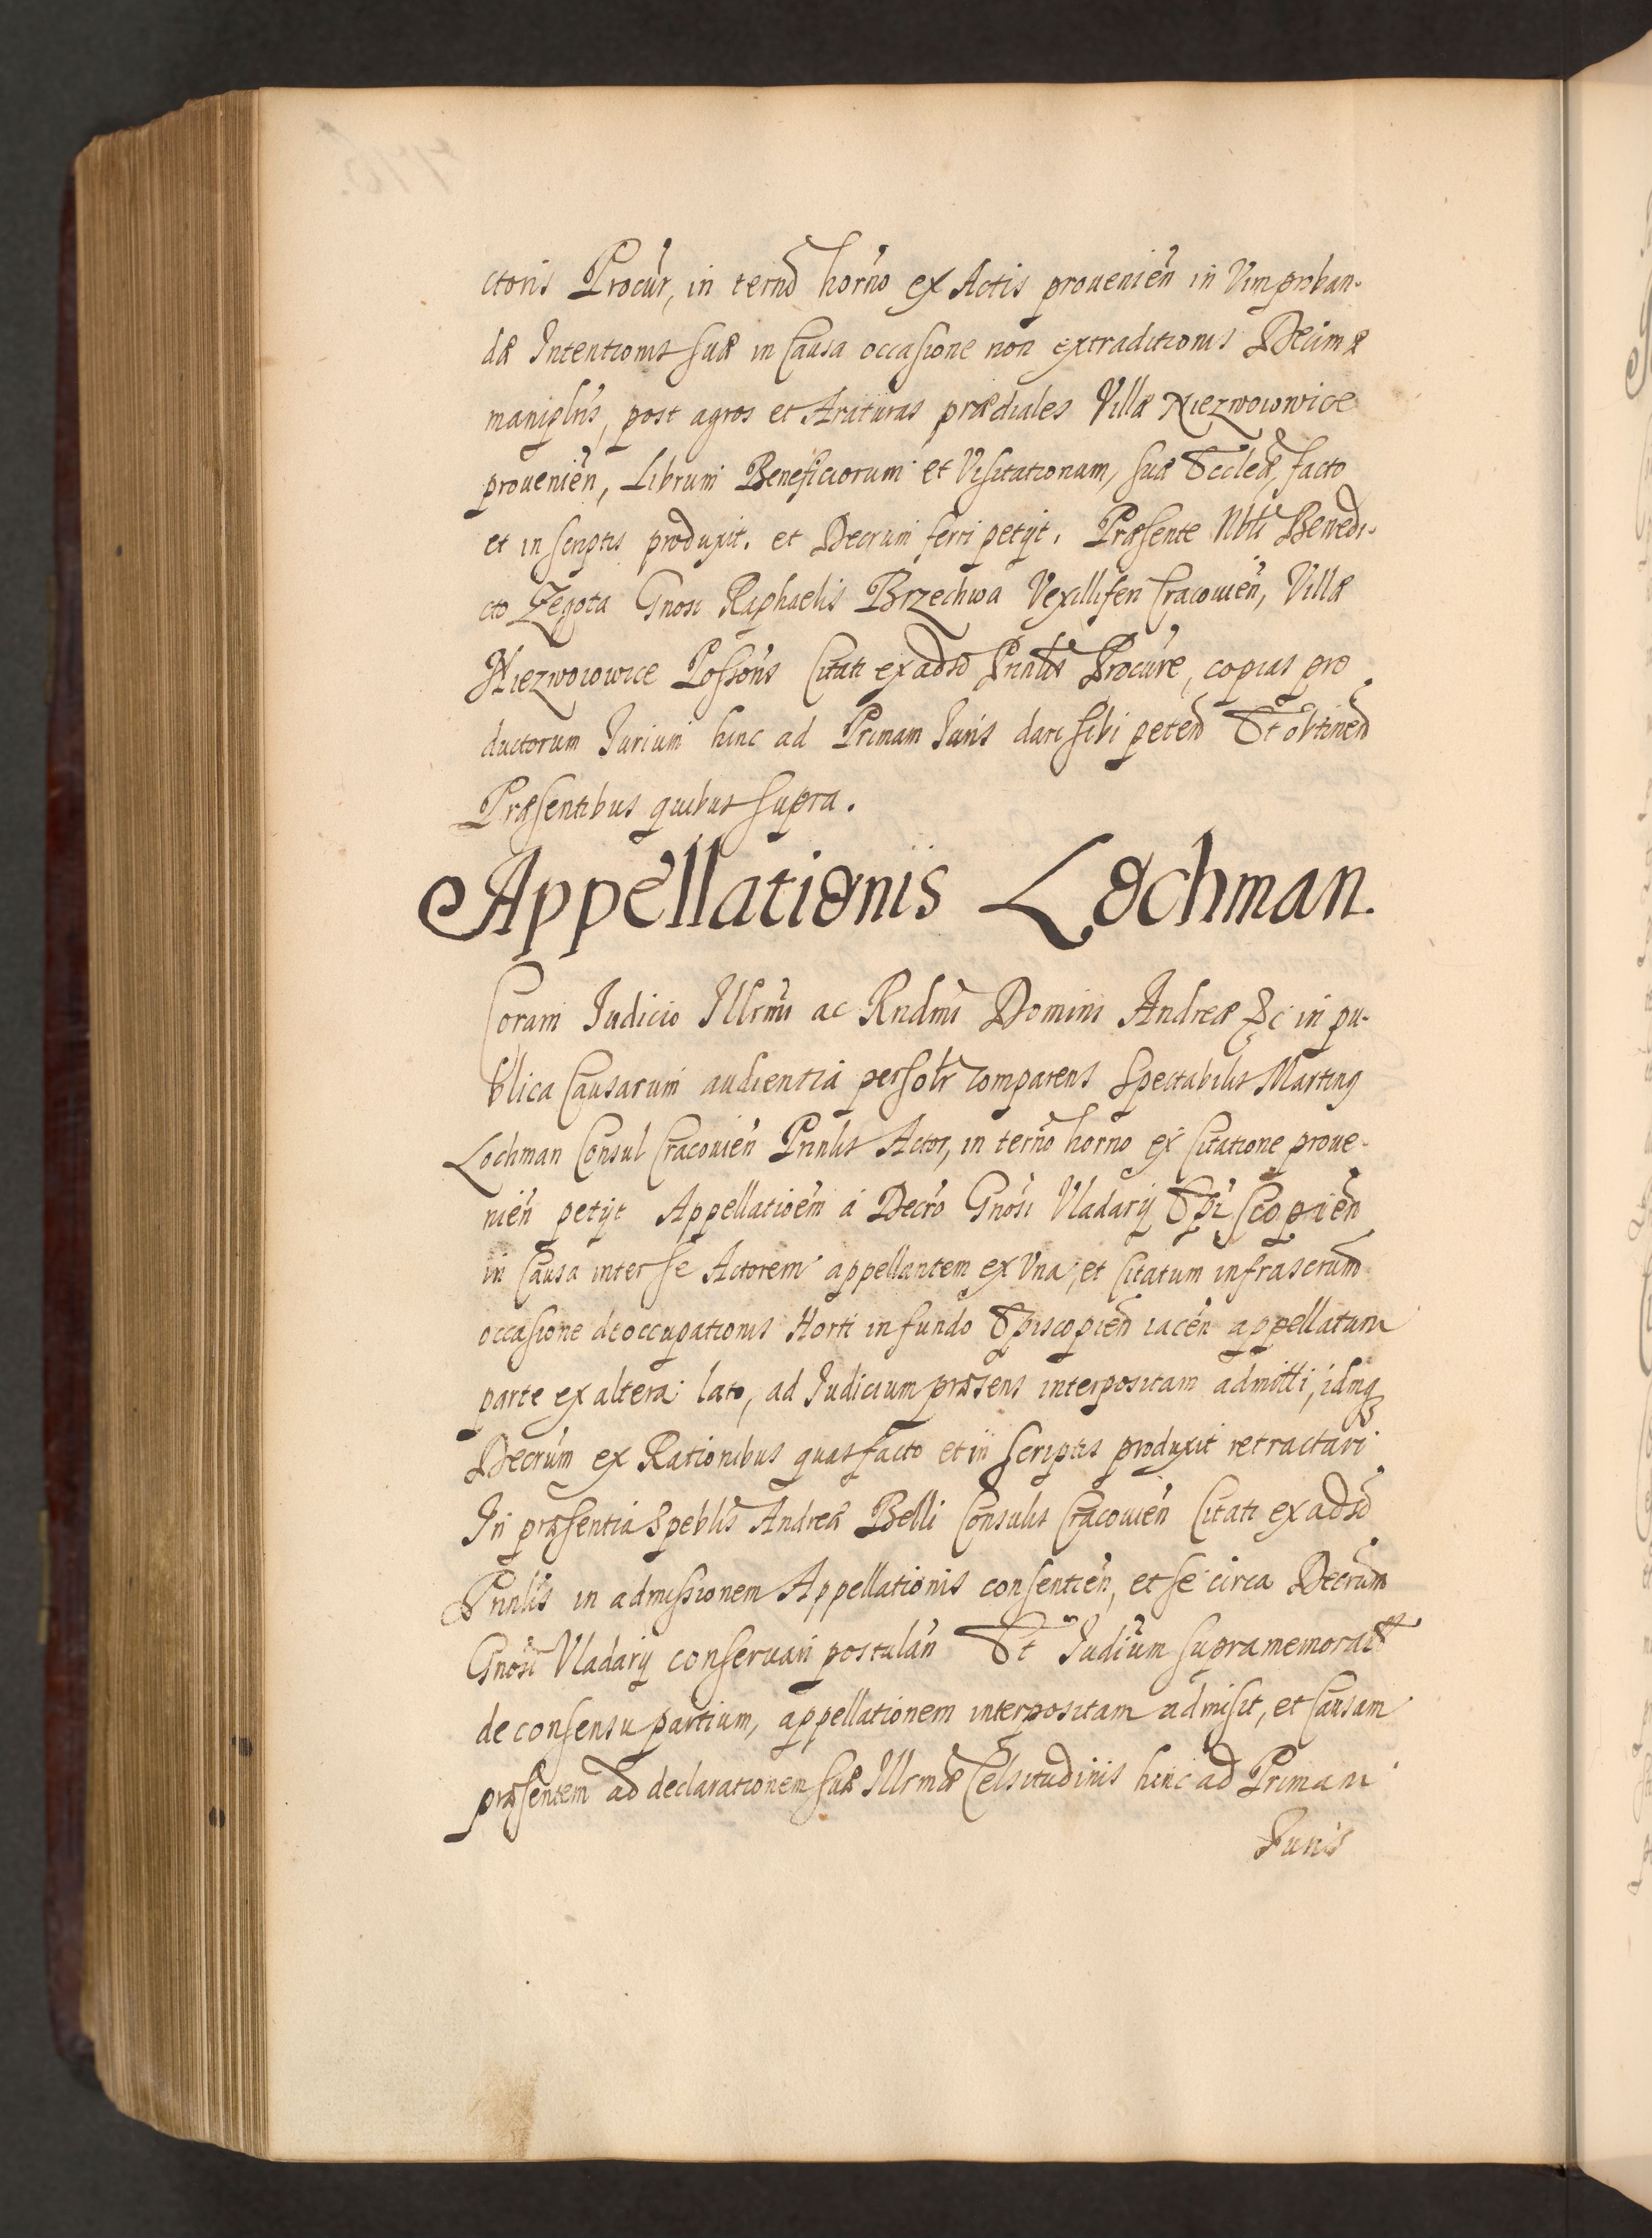 ctoris Procur, in termo horno ex Actis prouenien in Vim proban-
dæ Intentionis suæ in Causa occasione non extraditionis Decimæ
maniplris, post agros et Araturas prædiales Villæ Niezwoiowice
prouenien, Librum Beneficiorum et Visitationum, suæ Eccleæ, facto
et in scriptis produxit. et Decrum ferri petijt. Præsente Nbli Benedi-
cto Zegota Gnosi Raphaelis Brzechwa Vexilliferi Cracouien, Villæ
Niezwoiowice Possoris Citati ex adso Prinlis Procure, copias pro
ductorum Iurium hinc ad Primam Iuris dari sibi peten Et obtinen
Præsentibus quibus supra.
Appellationis Lochman.
Coram Iudicio Illrmi ac Rndmi Domini Andreæ &c in pu-
blica Causarum audientia persolr comparens Spectabilis Martinus
Lochman Consul Cracouien Prinlis Actor, in termo horno ex Citatione proue-
nien petijt Appellatioem à Decro Gnosi Vladarij Episcopien
in Causa inter se Actorem appellantem ex Vna, et Citatum infrascrum
occasione deoccupationis Horti in fundo Episcopien iacen appellatum
parte ex altera lato, ad Iudicium præsens interpositam admitti, idmq
Decrum ex Rationibus quas facto et in scriptis produxit retractari
In præsentia Speblis Andreæ Belli Consulis Cracouien Citati ex adso
Prinlis in admissionem Appellationis consentien, et se circa Decrum
Gnosi Vladarij conseruari postulan Et Iudium supramemorat
de consensu partium, appellationem interpositam admisit, et Causam
præsentem ad declarationem suæ Illrmæ Celsitudinis hinc ad Primam
Iuris